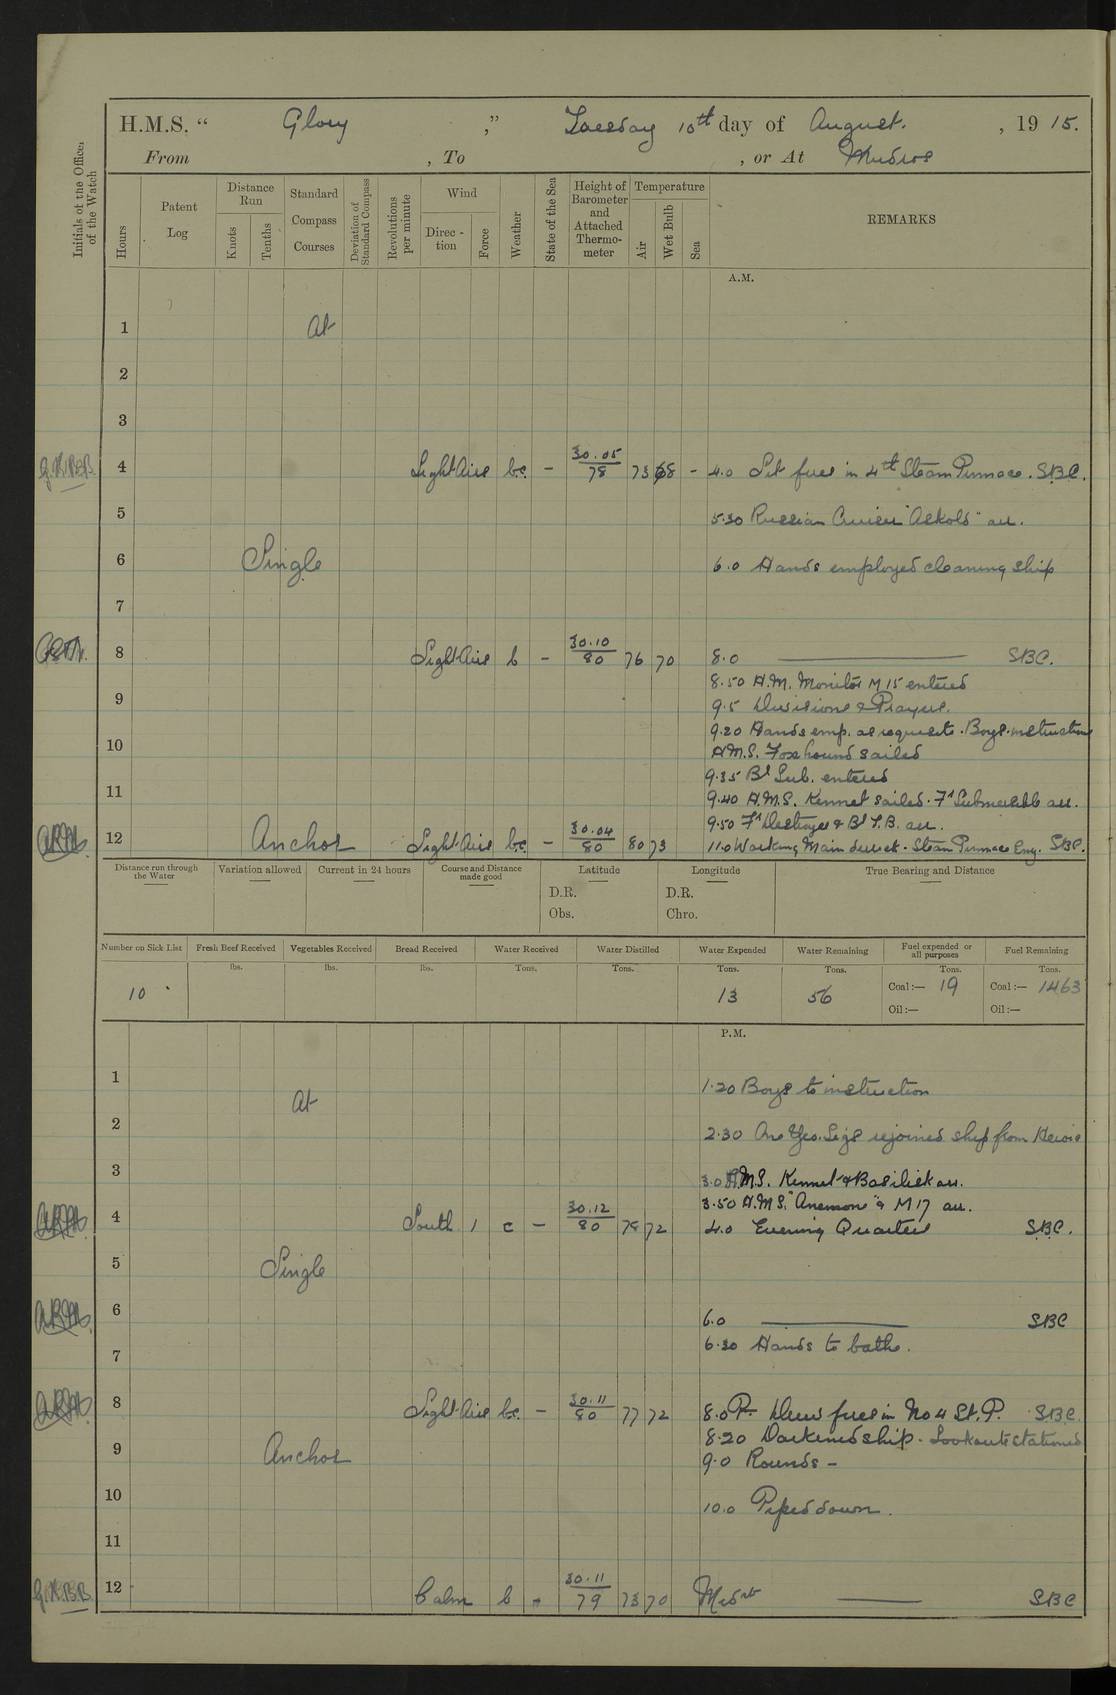 H.M.S. “ Glory ,” Tuesday 10th day of August. , 19 15.
From , To , or At Mudros
Initials of the Officer of the Watch
Hours
Patent Log
Distance Run
Knots
Tenths
Standard Compass Courses
Deviation of Standard Compass
Revolutions per minute
Wind
Direction
Force
Weather
State of the Sea
Height of Barometer and Attached Thermometer
Temperature
Air
Wet Bulb
Sea
REMARKS
A.M.
1 At
2
3
4 Light Airs bc. – 30.05/78 73 68 – 4.0 Lit fires in 4th Steam Pinnace. SBC.
5 5.30 Russian Cruiser "Askold" arr.
6 Single 6.0 Hands employed cleaning ship
7
8 Light Airs b – 30.10/80 76 70 8.0 SBC.
8.50 H.M. Monitor M 15 entered
9 9.5 Divisions & Prayers.
9.20 Hands emp. as requisite. Boys instruction
10 H.M.S. Foxhound sailed
9.35 Bt Sub. entered
11 9.40 H.M.S. Kennet sailed. Fr Submersible arr.
9.50 Fr Destroyer & Bt T.B. arr.
12 Anchor Light Airs bc. – 30.04/80 80 73 11.0 Working Main derrick. Steam Pinnace Eng. SBC.
Distance run through the Water
Variation allowed
Current in 24 hours
Course and Distance made good
Latitude
D.R.
Obs.
Longitude
D.R.
Chro.
True Bearing and Distance
Number on Sick List
Fresh Beef Received
Vegetables Received
Bread Received
Water Received
Water Distilled
Water Expended
Water Remaining
Fuel expended or all purposes
Fuel Remaining
lbs. lbs. lbs. Tons. Tons. Tons. Tons. Tons. Tons.
10 13 56 Coal:— 19 Coal:— 1463
Oil:— Oil:—
P.M.
1 1.20 Boys to instruction
At
2 2.30 One Yeo. Sigs rejoined ship from Heroic
3 3.0 H.M.S. Kennet & Basilisk arr.
3.50 H.M.S. "Anemone" & M 17 arr.
4 South 1 c – 30.12/80 78 72 4.0 Evening Quarters SBC.
5 Single
6 6.0 SBC
7 6.30 Hands to bathe.
8 Light Airs bc. – 30.11/80 77 72 8.0 Drew fires in No 4 St. P. SBC.
8.20 Darkened ship. Lookouts stationed
9 Anchor 9.0 Rounds –
10 10.0 Piped down.
11
12 Calm b 30.11/79 73 70 Midnt SBC